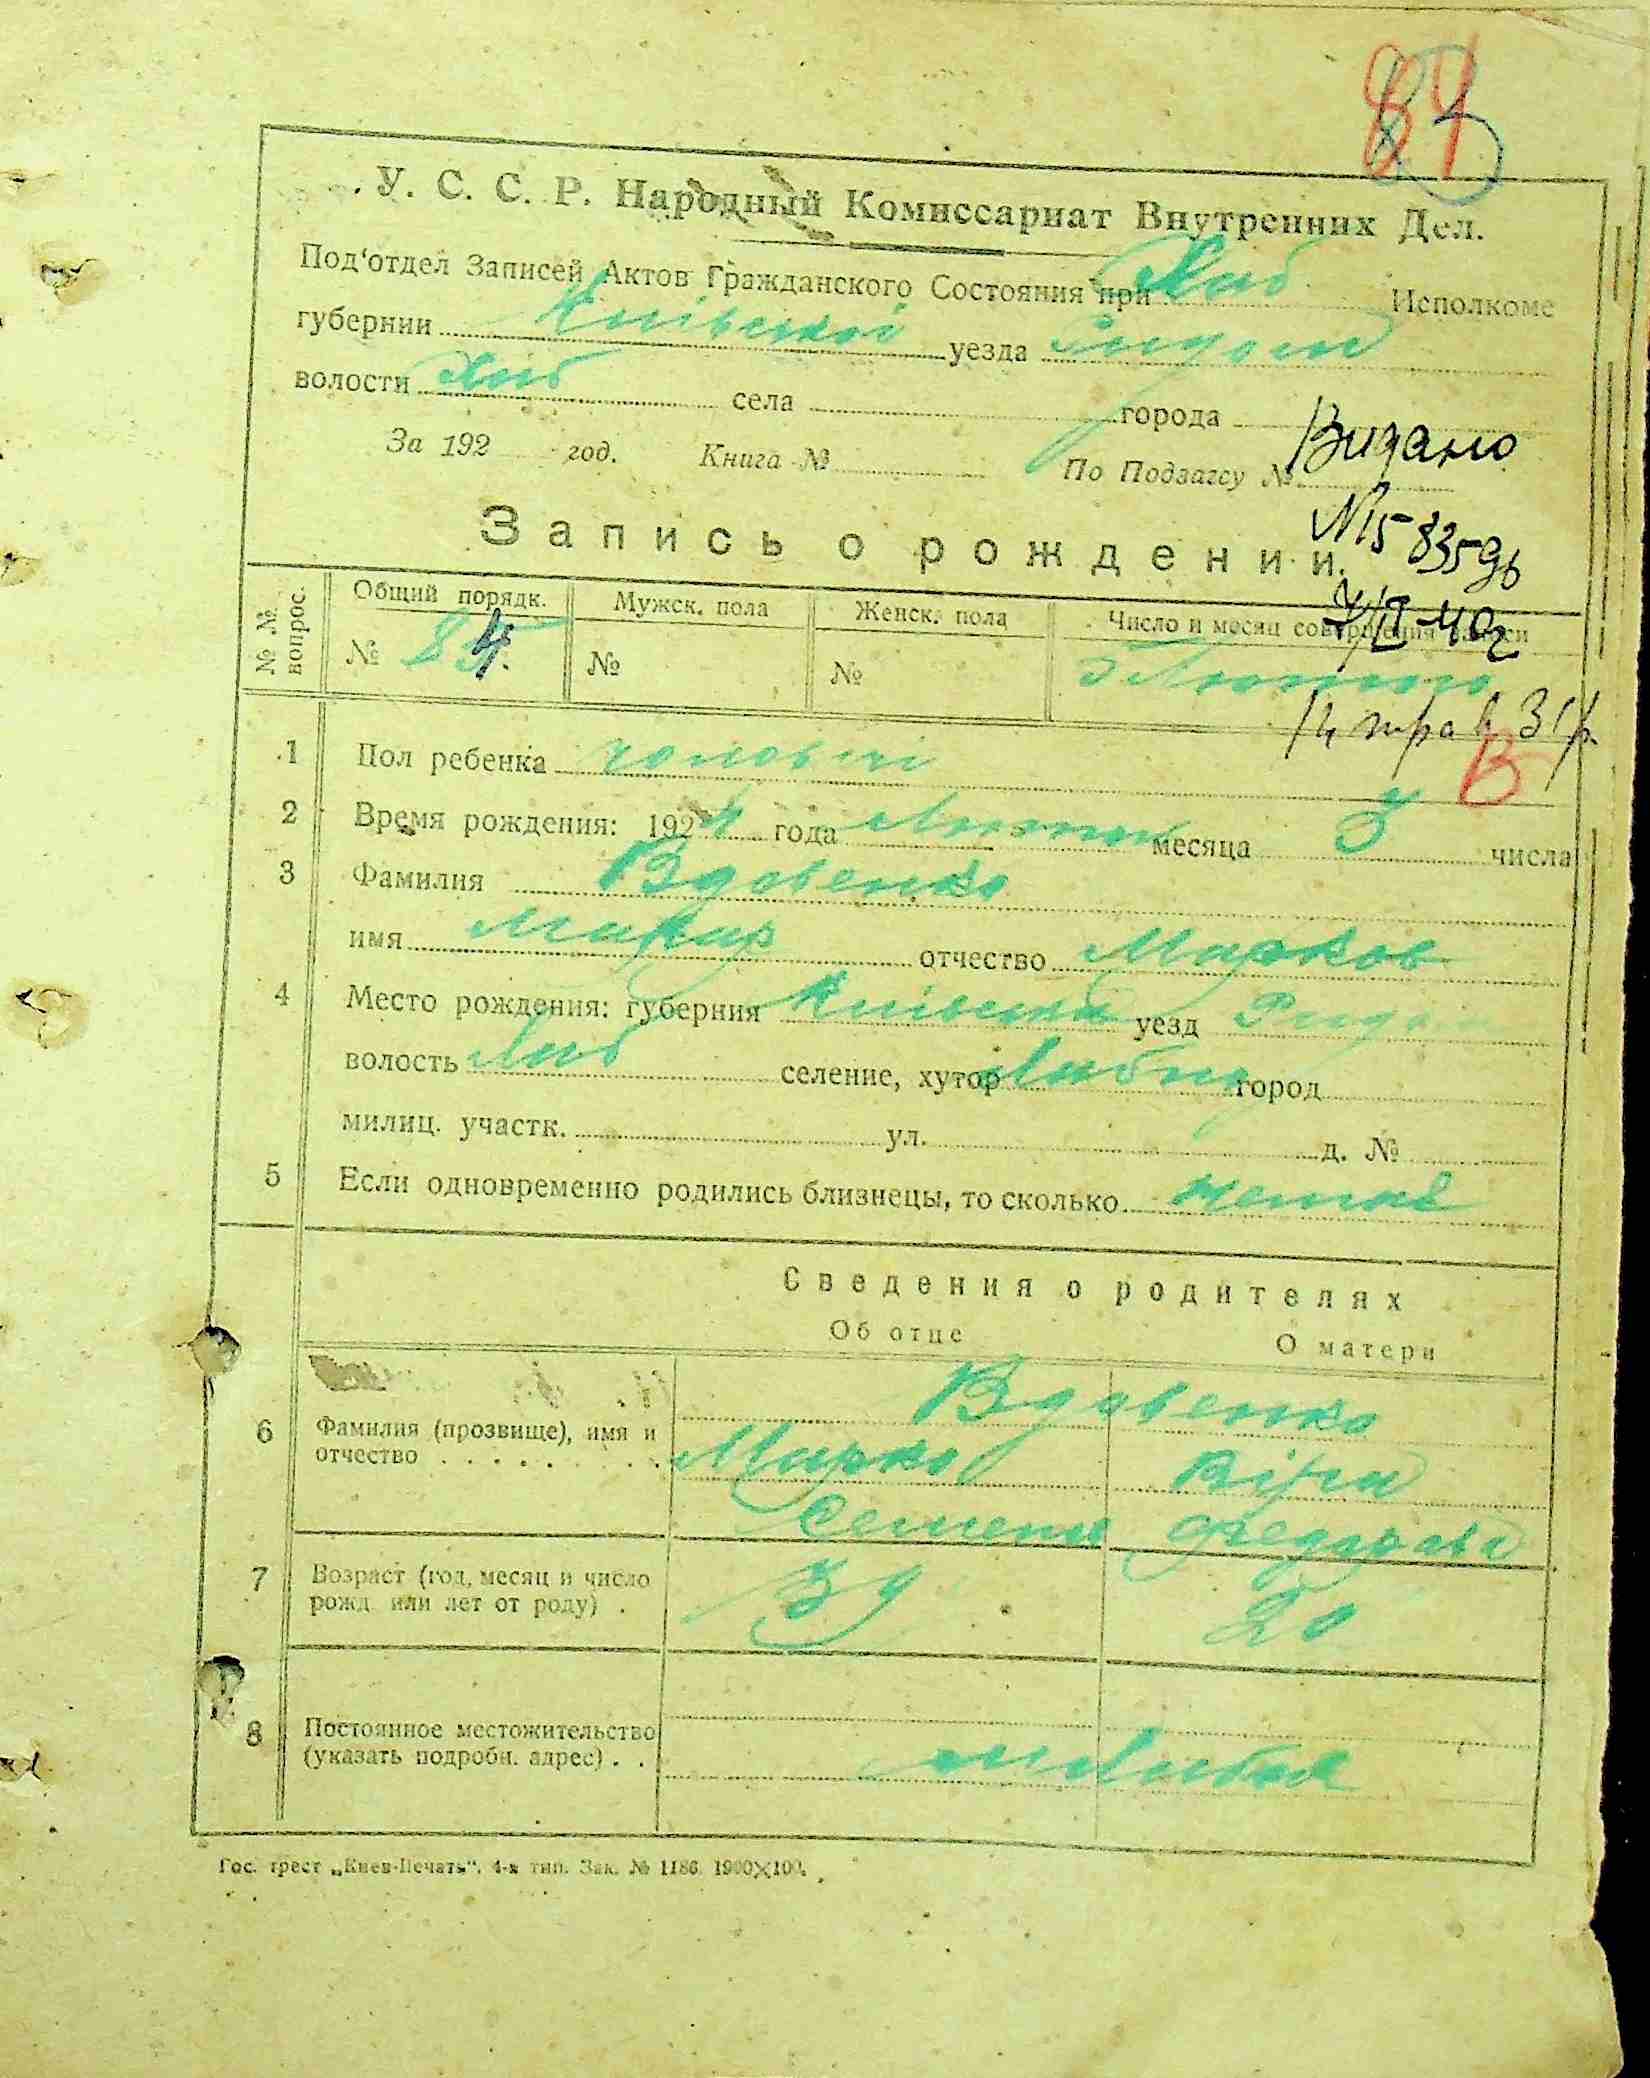 84
У. С. С. Р. Народный Комиссариат Внутренних Дел.
Под'отдел Записей Актов Гражданского Состояния при Исполкоме
губернии Київської уезда
волости села города
За 192 год. Книга № По Подзагсу №
Видано
Запись о рождении.
№ 15
№№ вопрос. Общий порядк. Мужск. пола Женск. пола Число и месяц совершения записи
№ 84. № № 5 Лютого
1 Пол ребенка чоловічі
2 Время рождения: 1924 года Лютого месяца 3 числа
3 Фамилия Вдовенко
имя Макар отчество Марков
4 Место рождения: губерния Київська уезд
волость селение, хутор город
милиц. участк. ул. д. №
5 Если одновременно родились близнецы, то сколько немає
Сведения о родителях
Об отце О матери
Вдовенко
6 Фамилия (прозвище), имя и отчество Марко Віра
Семенов Федорова
7 Возраст (год, месяц и число рожд. или лет от роду) 39 20
8 Постоянное местожительство (указать подробн. адрес)
Гос. трест „Киев-Печать“. 4-я тип. Зак. № 1186. 1900×100.